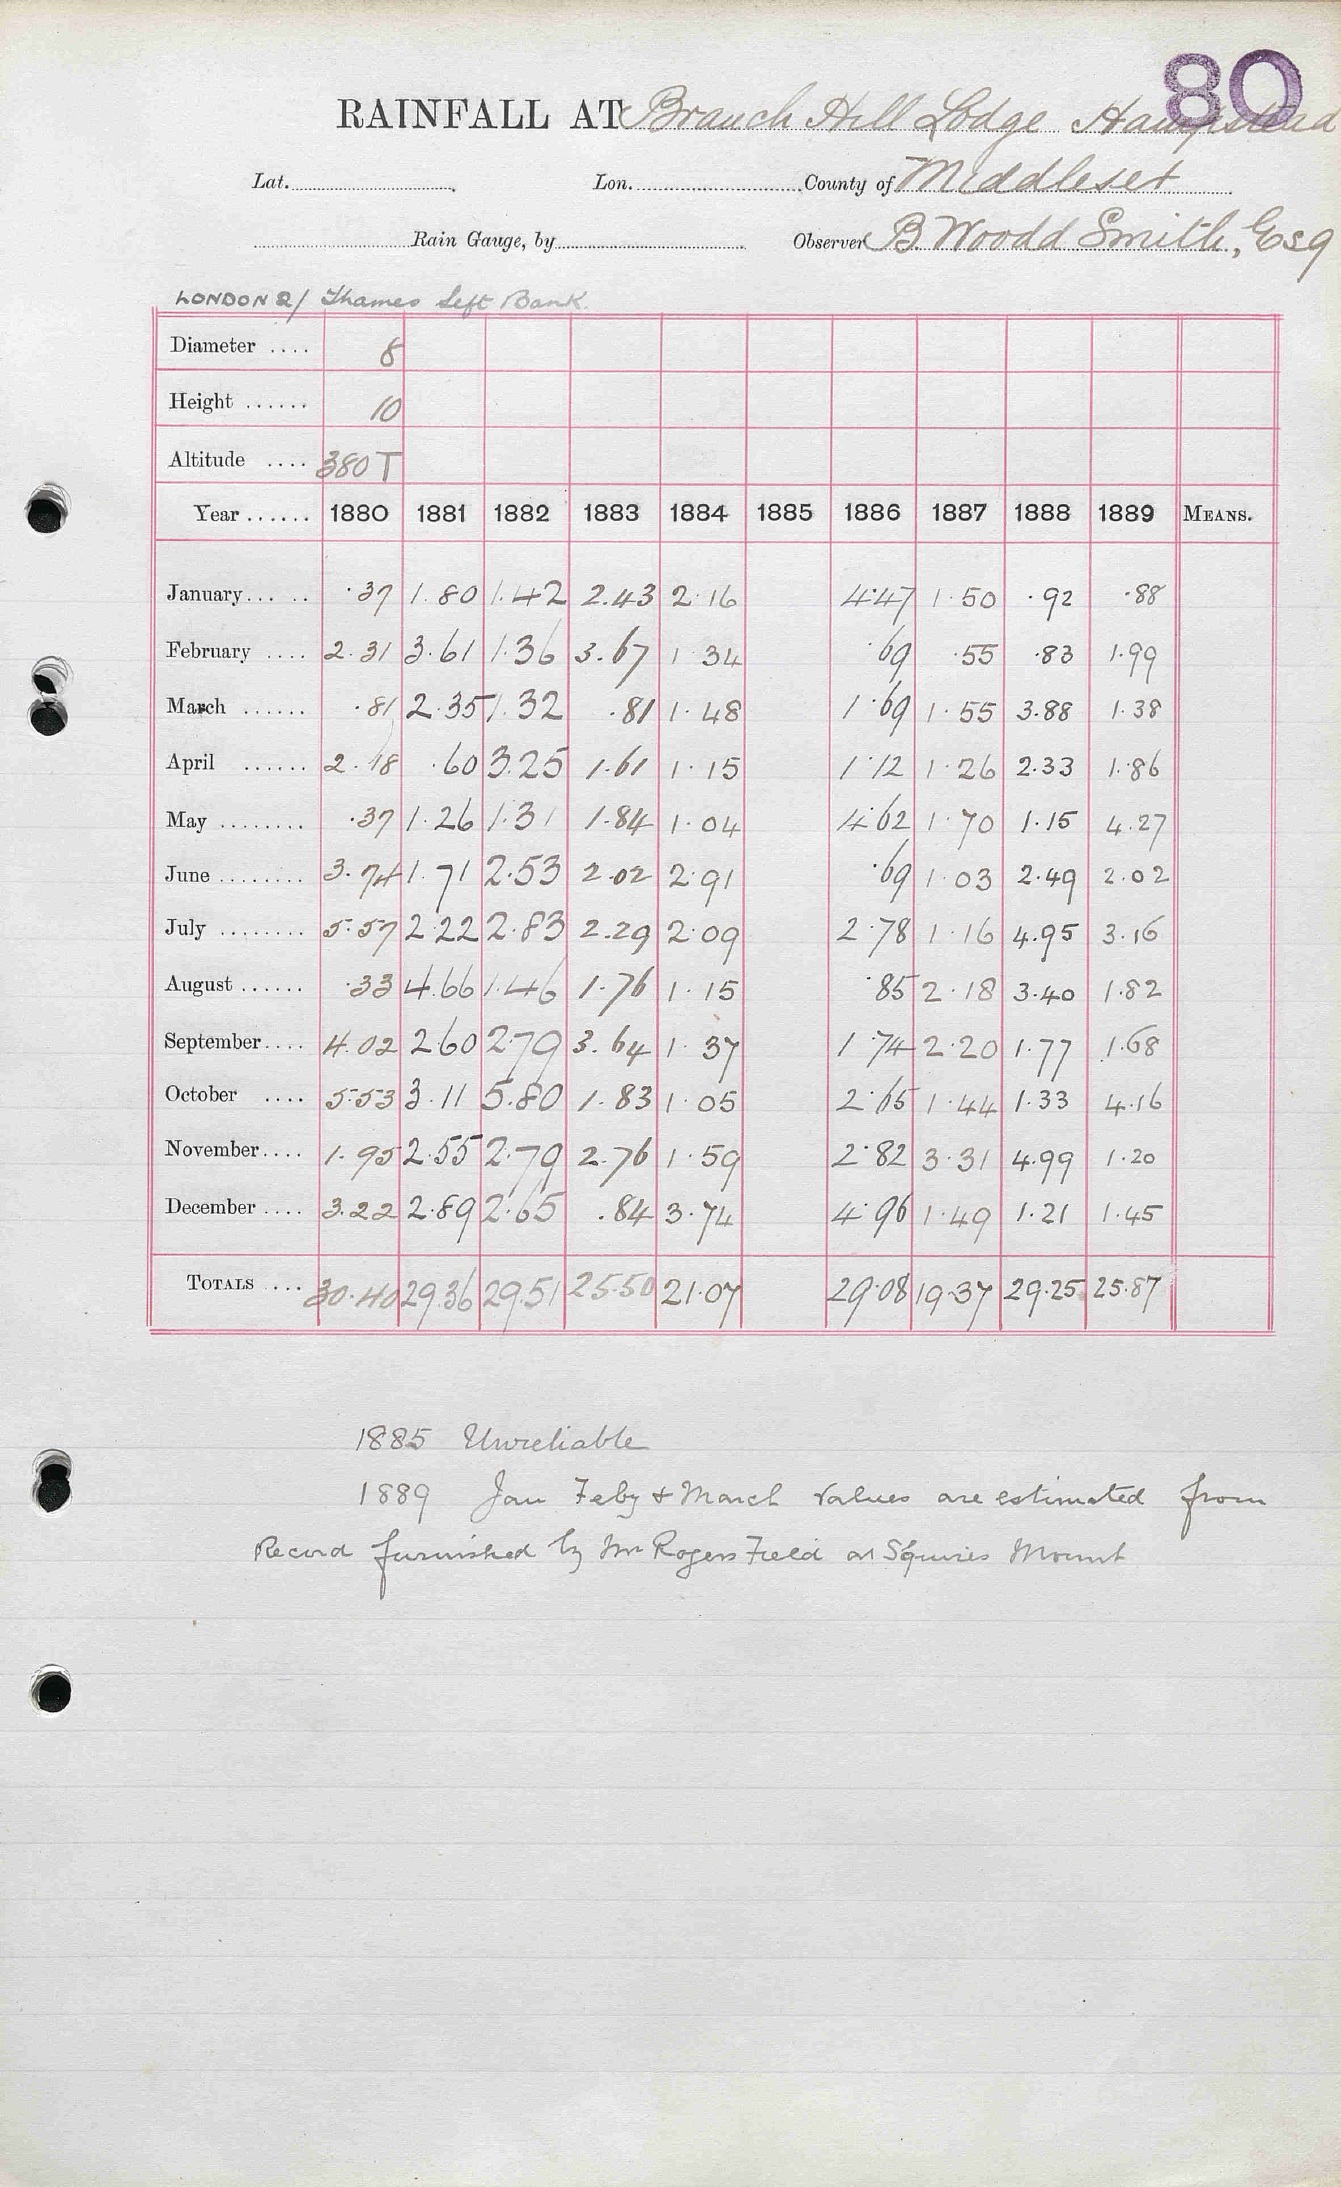 80
RAINFALL AT Branch Hill Lodge Hampstead
Lat. Lon. County of Middlesex
Rain Gauge, by Observer B. Woodd Smith, Esq
LONDON 2/ Thames Left Bank.
Diameter .... 8
Height ...... 10
Altitude .... 380 T
Year ...... 1880 1881 1882 1883 1884 1885 1886 1887 1888 1889 MEANS.
January ... .. ·37 1.80 1.42 2.43 2.16 4.47 1.50 .92 .88
February .... 2.31 3.61 1.36 3.67 1.34 .69 .55 .83 1.99
March ...... .81 2.35 1.32 .81 1.48 1.69 1.55 3.88 1.38
April ...... 2.18 .60 3.25 1.61 1.15 1.12 1.26 2.33 1.86
May ........ .37 1.26 1.31 1.84 1.04 4.62 1.70 1.15 4.27
June ........ 3.74 1.71 2.53 2.02 2.91 .69 1.03 2.49 2.02
July ........ 5.57 2.22 2.83 2.29 2.09 2.78 1.16 4.95 3.16
August ...... .33 4.66 1.46 1.76 1.15 .85 2.18 3.40 1.82
September .... 4.02 2.60 2.79 3.64 1.37 1.74 2.20 1.77 1.68
October .... 5.53 3.11 5.80 1.83 1.05 2.65 1.44 1.33 4.16
November .... 1.95 2.55 2.79 2.76 1.59 2.82 3.31 4.99 1.20
December .... 3.22 2.89 2.65 .84 3.74 4.96 1.49 1.21 1.45
TOTALS ... 30.40 29.36 29.51 25.50 21.07 29.08 19.37 29.25 25.87
1885 Unreliable
1889 Jan Feby & March values are estimated from
Record furnished by Mr Rogers Field at Squires Mount